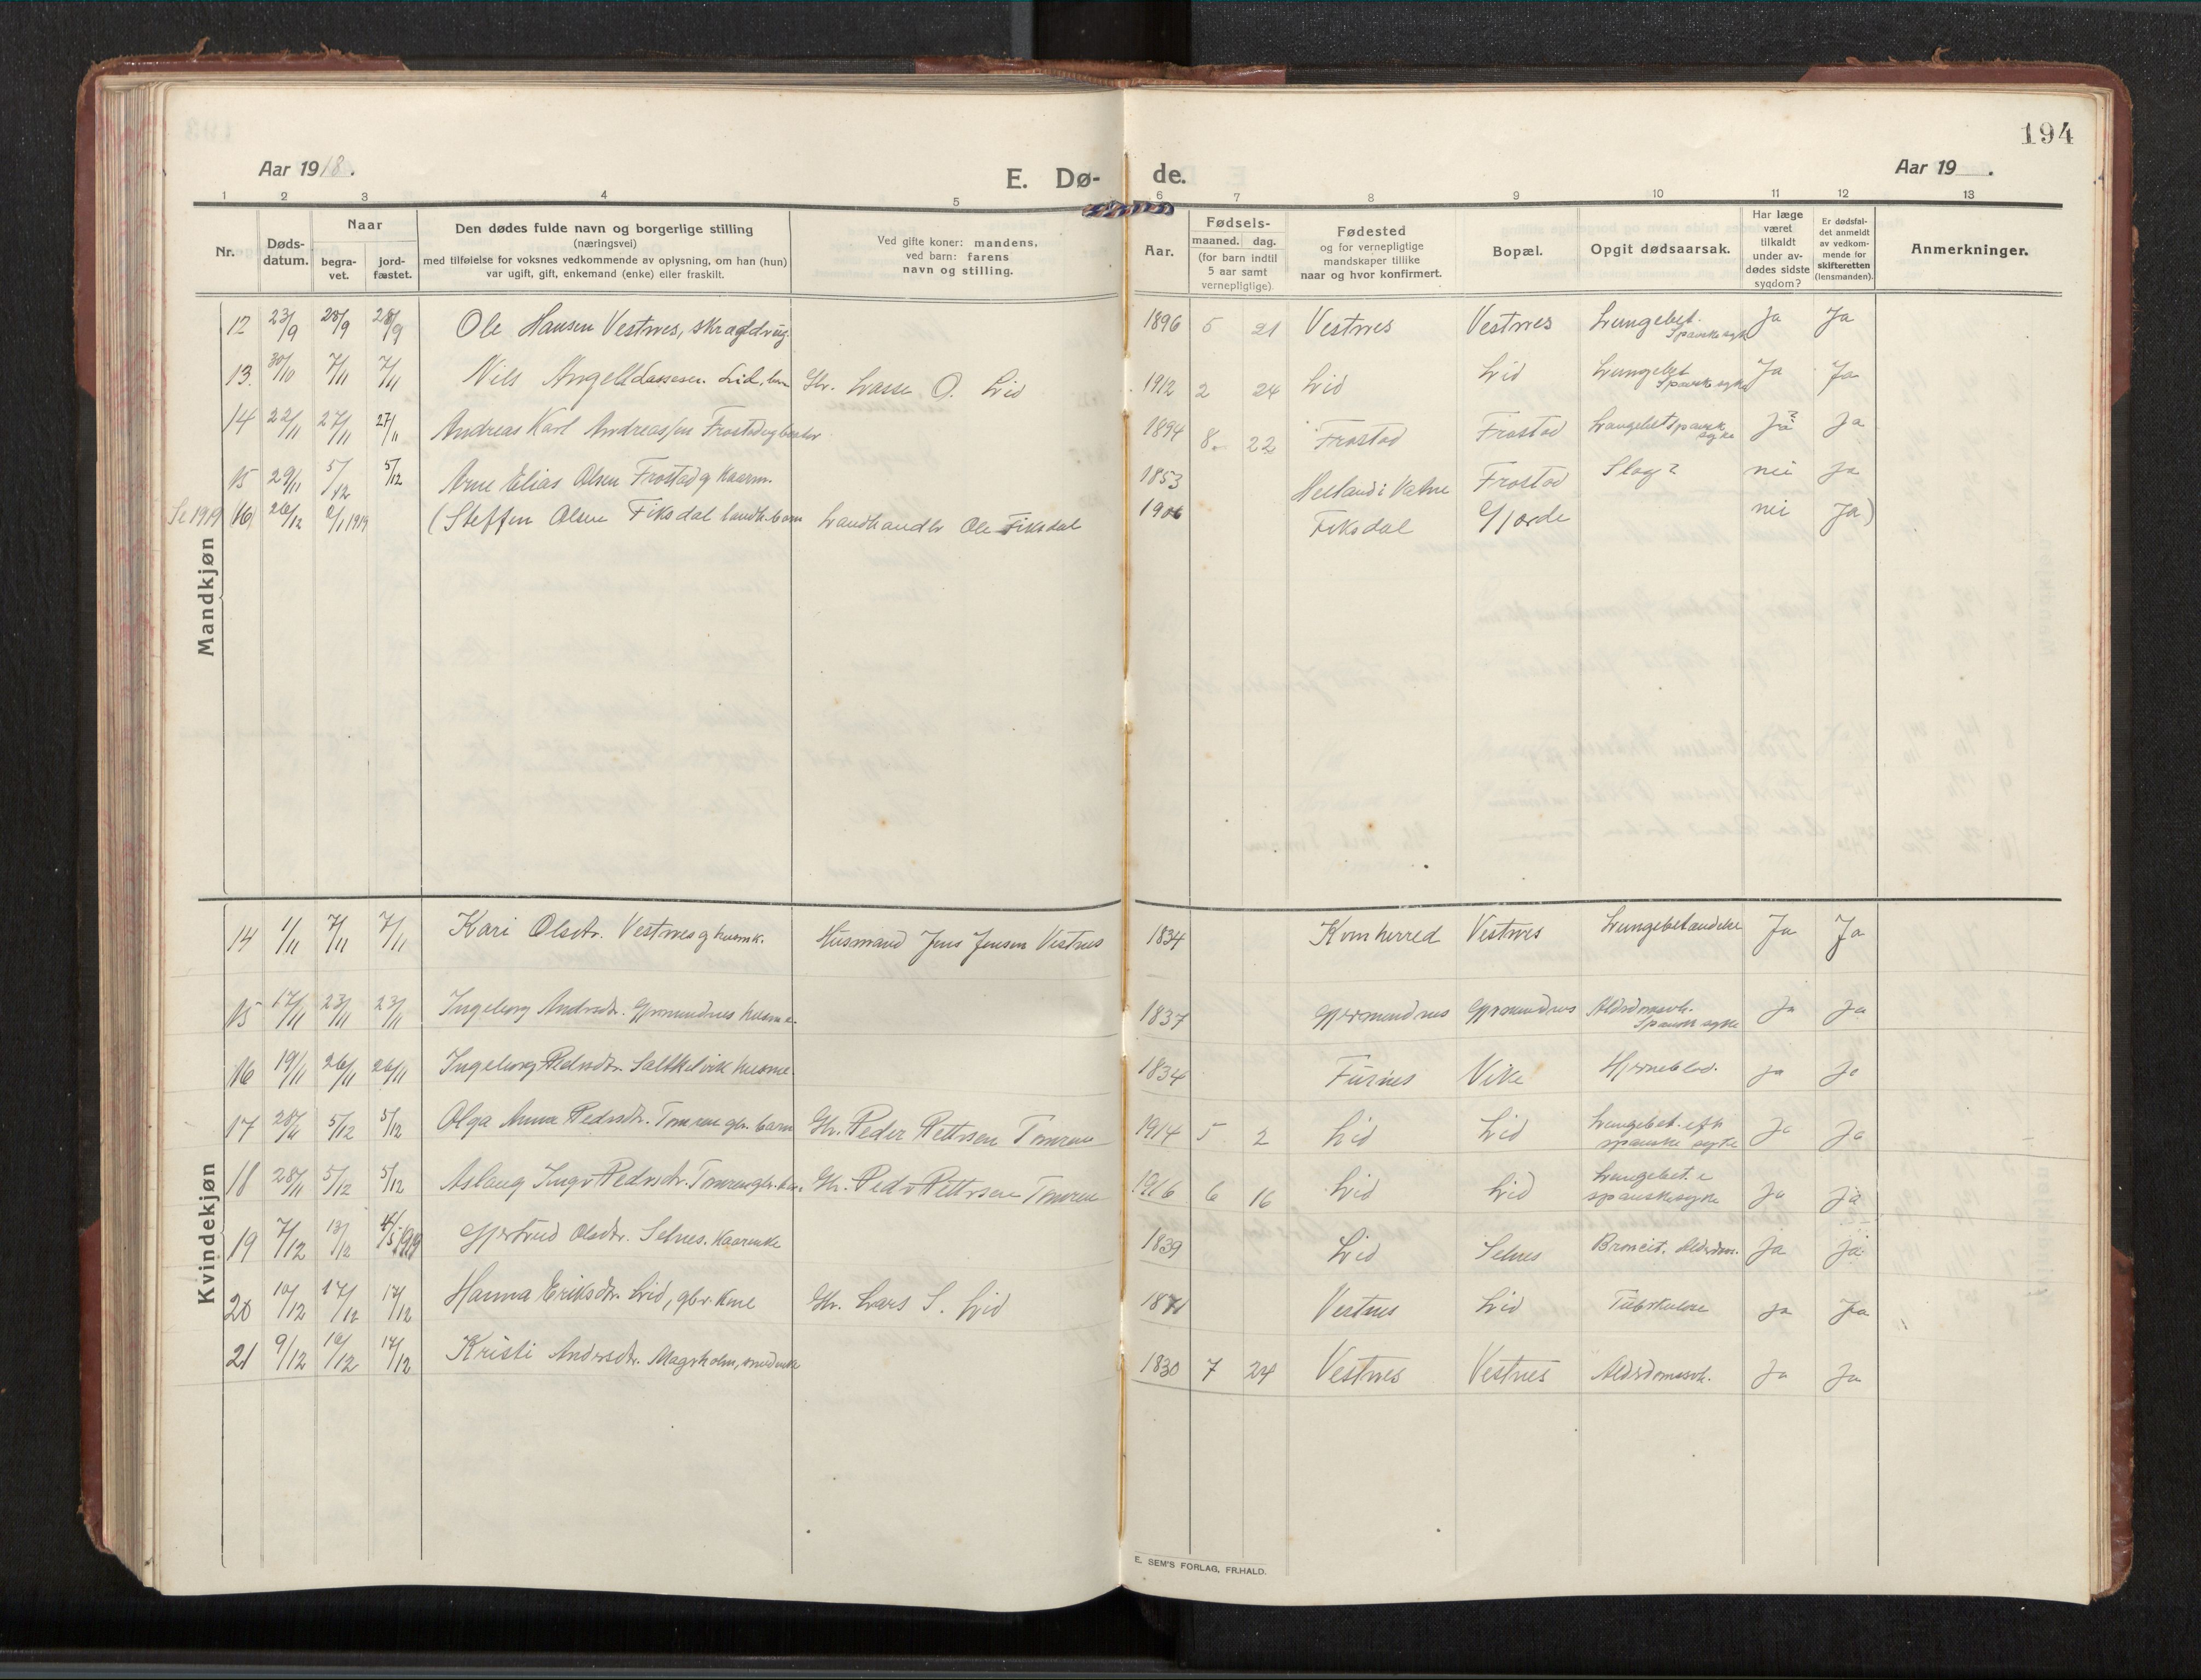 194
Aar 1918.
E. Dø- de.
Aar 19 .
1 2 3 4 5 6 7 8 9 10 11 12 13
Nr.
Døds-
datum.
Naar
begra-
vet.
jord-
fæstet.
Den dødes fulde navn og borgerlige stilling
(næringsvei)
med tilføielse for voksnes vedkommende av oplysning, om han (hun)
var ugift, gift, enkemand (enke) eller fraskilt.
Ved gifte koner: mandens,
ved barn: farens
navn og stilling.
Aar.
Fødsels-
maaned. dag.
(for barn indtil
5 aar samt
vernepligtige).
Fødested
og for vernepligtige
mandskaper tillike
naar og hvor konfirmert.
Bopæl.
Opgit dødsaarsak.
Har læge
været
tilkaldt
under av-
dødes sidste
sygdom?
Er dødsfal-
det anmeldt
av vedkom-
mende for
skifteretten
(lensmanden).
Anmerkninger.
Mandkjøn
12 23/9 28/9 28/9 Ole Hansen Vestnes, 1896 5 21 Vestnes Vestnes Lungebet. Spanske syk Ja Ja
13. 30/10 7/11 7/11 Nils Angell Lassesen Lid, barn Gbr. Lasse O. Lid 1912 2 24 Lid Lid Lungebet Spansk syke Ja Ja
14 22/11 27/11 27/11 Andreas Karl Andreassen Frostad 1894 8. 22 Frostad Frostad Lungebet spansk syke Ja? Ja
15 29/11 5/12 5/12 Arne Elias Olsen Frostad g kaarm. 1853 Helland i Vatne Frostad Slag? nei ja
Se 1919 16) 26/12 1919 (Steffen Olsen Fiksdal landh. barn Landhandler Ole Fiksdal 1906 Fiksdal Gjerde nei Ja)
Kvindekjøn
14 1/11 7/11 7/11 Kari Olsdtr. Vestnes g husmk. Husmand Jens Jensen Vestnes 1834 Kvernherred Vestnes Lungebetændelse Ja Ja
15 17/11 23/11 23/11 Ingeborg Andrsdtr. Gjermundnes 1837 Gjermundnes Gjermundnes Aldrdomssvk. Spansk syke Ja Ja
16 19/11 26/11 26/11 Ingeborg Pedrsdtr. Saltkelvik 1834 Furnes Vike Hjerneblød. ja Ja
17 28/11 5/12 5/12 Olga Anna Pedrsdtr. Tomren gbr. barn Gbr. Peder Pettersen Tomren 1914 5 2 Lid Lid Lungebet. eftr spanske syke Ja Ja
18 28/11 5/12 5/12 Aslaug Inger Pedrsdtr. Tomren gbr. barn Gbr. Peder Pettersen Tomren 1916 6 16 Lid Lid Lungebet. e spanskesyke Ja ja
19 7/12 13/12 1919 Gjertrud Olsdtr. Selnes. Kaarenke 1839 Lid Selnes Broncit. Aldrdom. ja ja
20 10/12 17/12 17/12 Hanna Eriksdtr. Lid, gbr. kone Gbr. Lars S. Lid 1871 Vestnes Lid Tuberkulose ja Ja
21 9/12 16/12 17/12 Kristi Andrsdtr. Magerholm, 1830 7 24 Vestnes Vestnes Aldrdomssvk. Ja Ja
E. SEM'S FORLAG, FR.HALD.